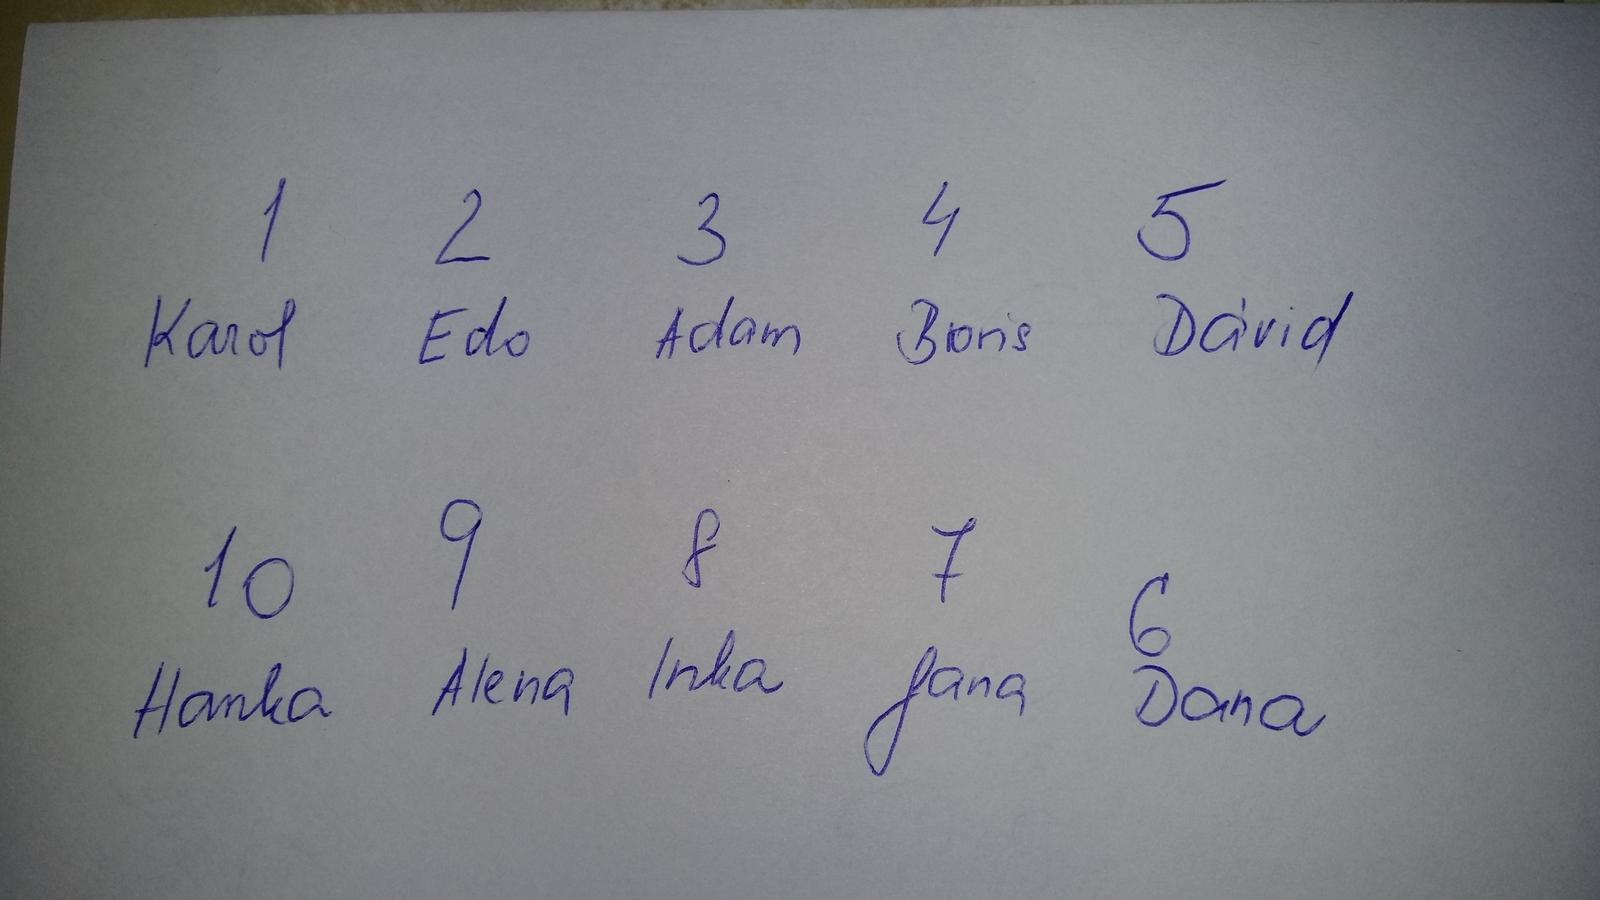 1 2 3 4 5
Karol Edo Adam Boris Dávid
10 9 8 7 6
Hanka Alena Inka Jana Dana